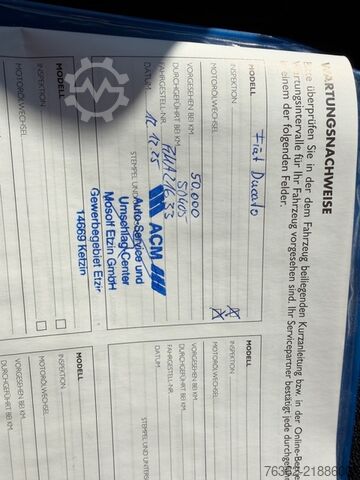 WARTUNGSNACHWEISE
Bitte überprüfen Sie in der dem Fahrzeug beiliegenden Kurzanleitung bzw. in der Online-Betrie
Wartungsintervalle für Ihr Fahrzeug vorgesehen sind. Ihr Servicepartner bestätigt jede durchgeführ
in einem der folgenden Felder.
MODELL
Fiat Ducato
INSPEKTION
MOTORÖLWECHSEL
VORGESEHEN BEI KM.
50.000
DURCHGEFÜHRT BEI KM.
FAHRGESTELL-NR.
DATUM
STEMPEL UND
ACM
Auto-Service und
Umschlag-Center
Mosolf Etzin GmbH
Gewerbegebiet Etzin
14669 Ketzin
MODELL
INSPEKTION
MOTORÖLWECHSEL
MODELL
INSPEKTION
MOTORÖLWECHSEL
VORGESEHEN BEI KM.
DURCHGEFÜHRT BEI KM.
FAHRGESTELL-NR.
DATUM
STEMPEL UND UNTERS
MODELL
INSPEKTION
MOTORÖLWECHSEL
VORGESEHEN BEI KM.
DURCHGEFÜHRT BEI KM.